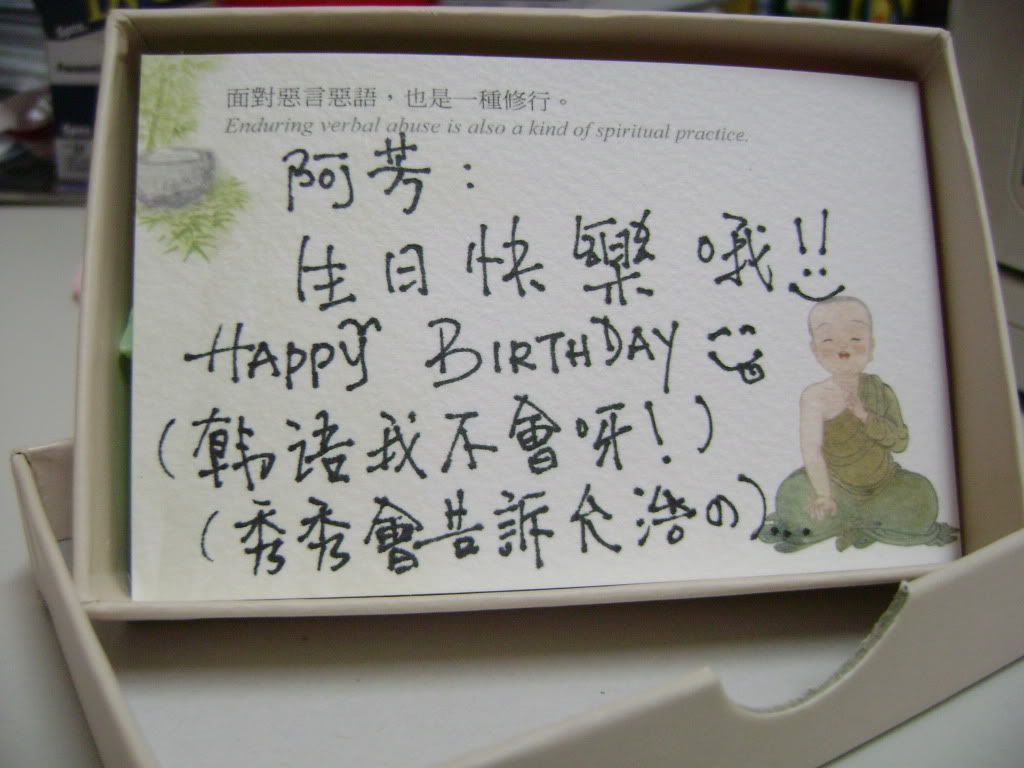 面對惡言惡語，也是一種修行。
Enduring verbal abuse is also a kind of spiritual practice.
阿芳：
生日快樂哦!!
HAPPY BIRTHDAY
(韩语我不會呀!)
(秀秀會告訴允浩の)